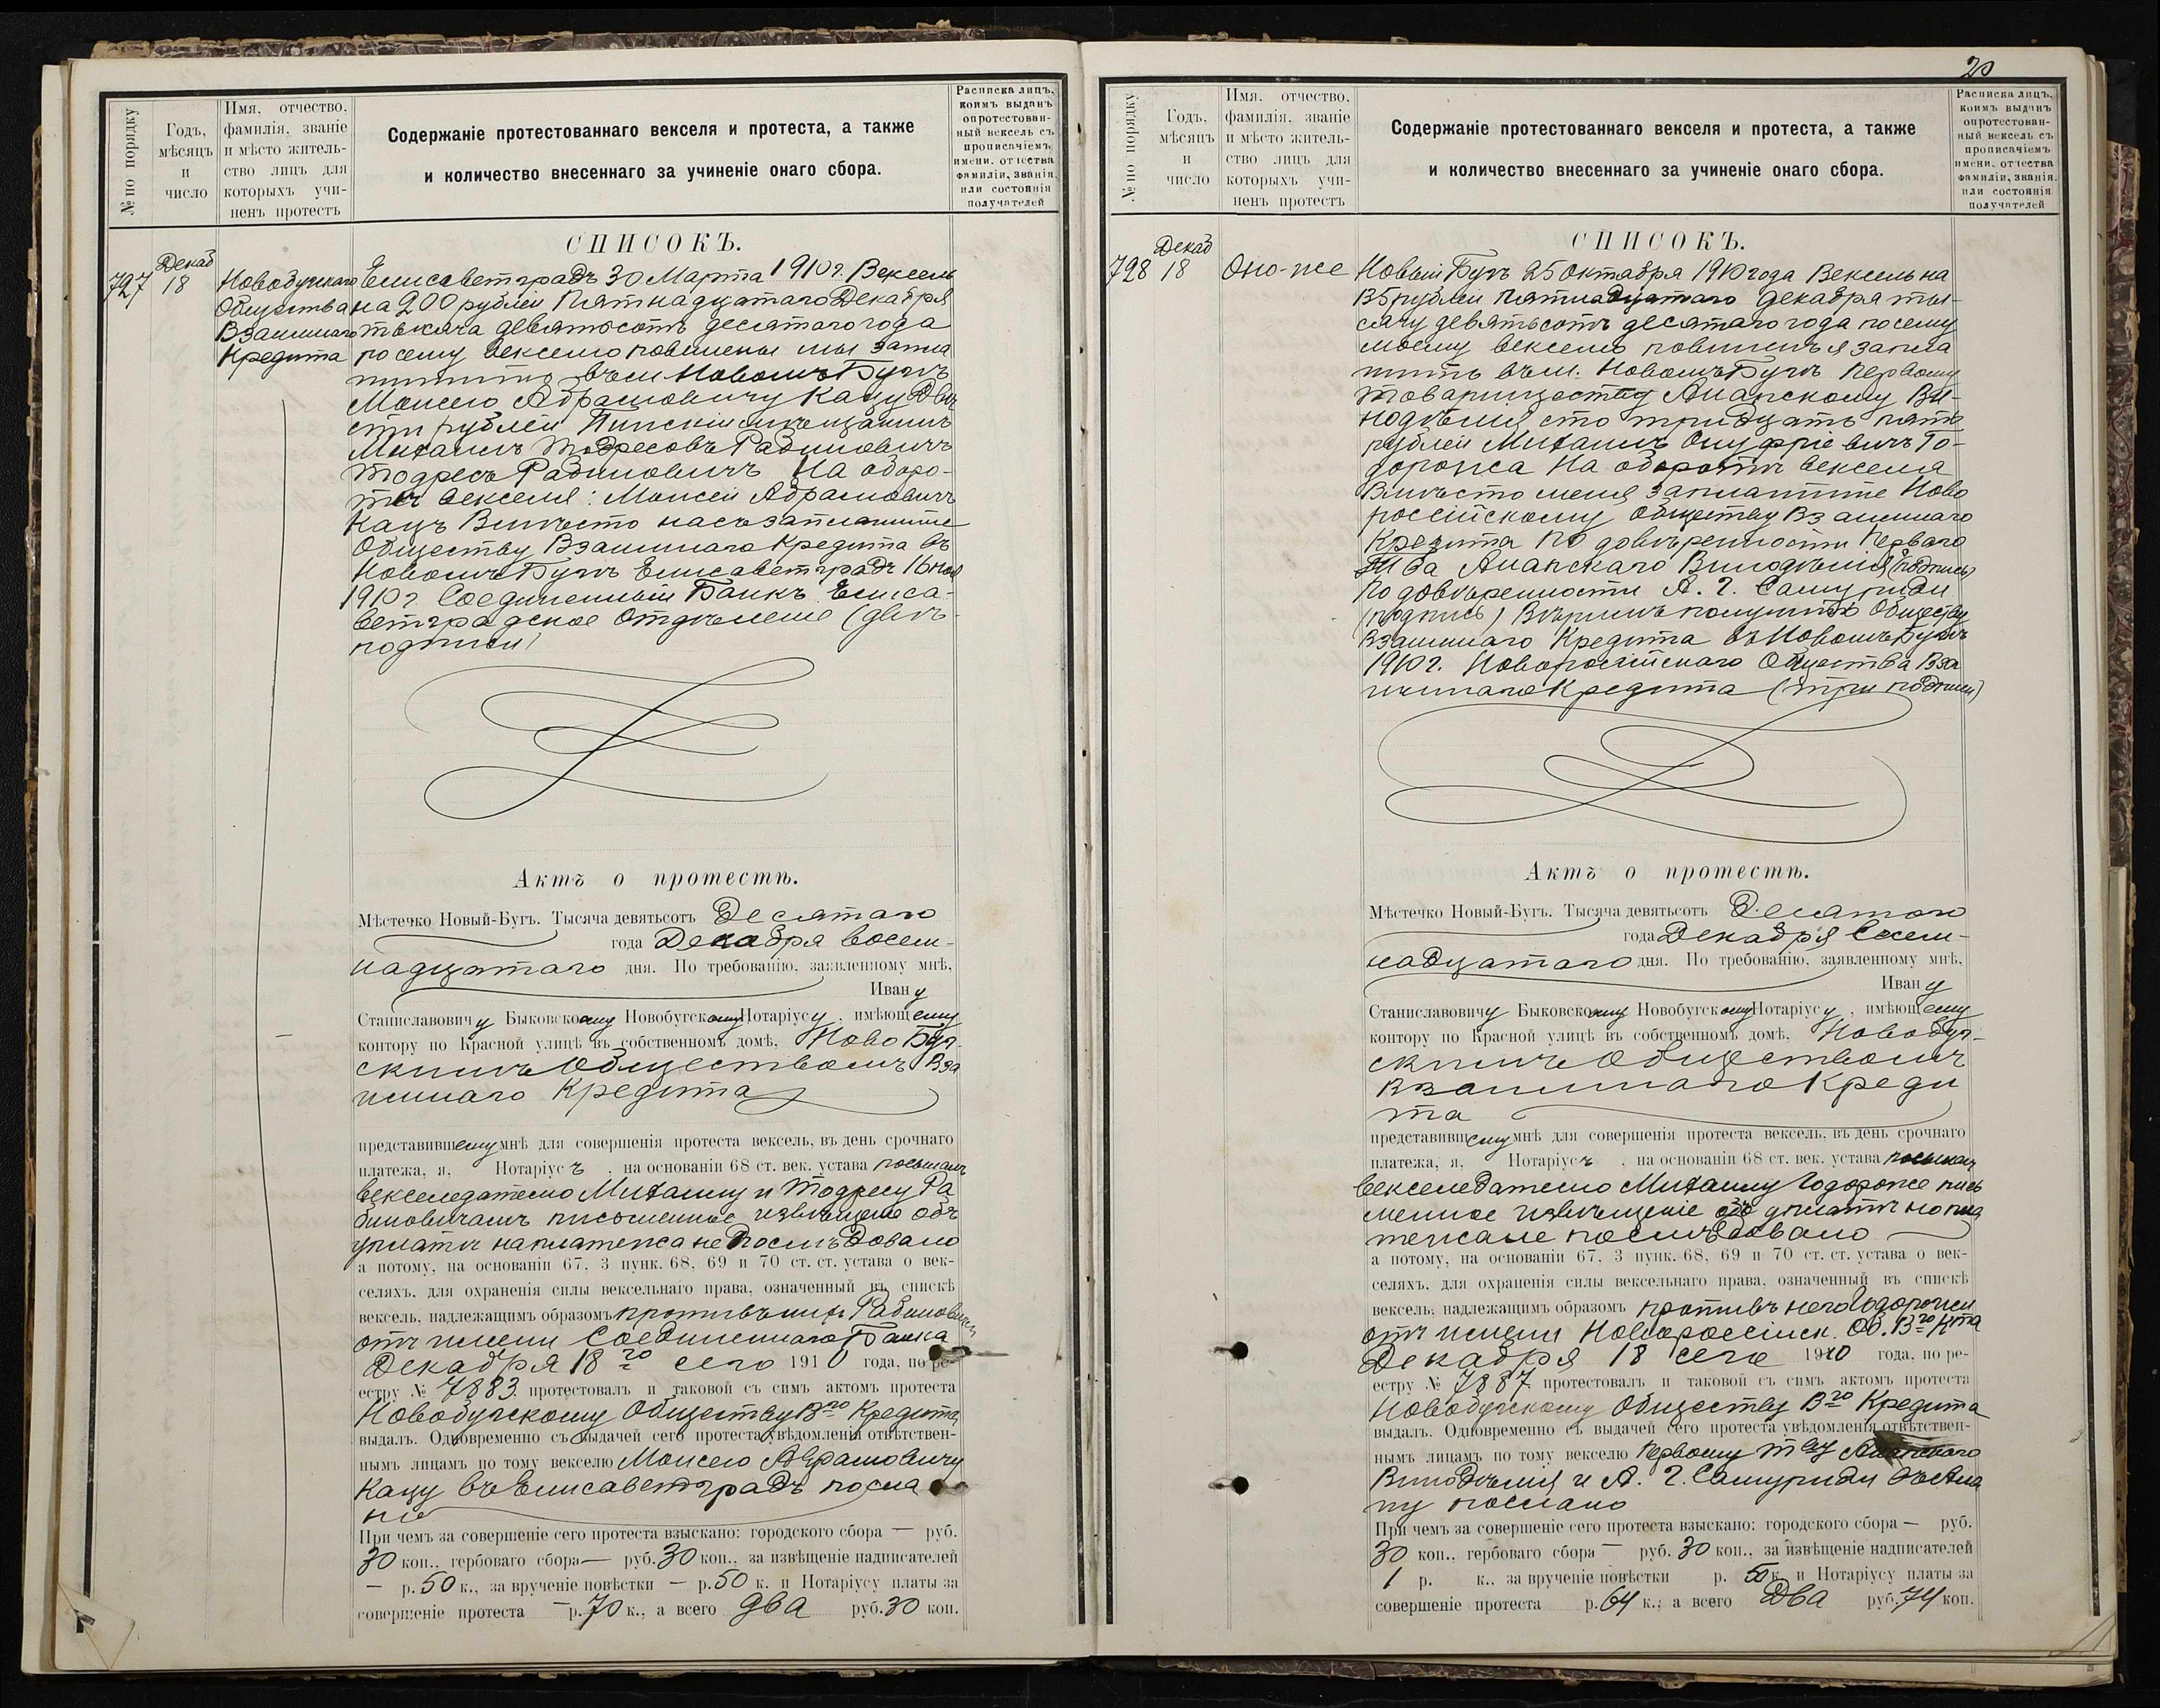 № по порядку
Годъ,
мѣсяцъ
и
число
Имя, отчество,
фамилія, званіе
и мѣсто житель-
ство лицъ для
которыхъ учи-
ненъ протестъ
Содержаніе протестованнаго векселя и протеста, а также
и количество внесеннаго за учиненіе онаго сбора.
Расписка лицъ,
коимъ выданъ
опротестован-
ный вексель съ
прописаніемъ
имени, отчества
фамиліи, званія,
или состоянія
получателей
СПИСОКЪ.
727
Декаб
18
Новобугскаго
Общества
Взаимнаго
Кредита
Елисаветградъ 30 Марта 1910 г. Вексель
на 200 рублей Пятнадцатаго Декабря
тысяча девятьсотъ десятаго года
по сему векселю повинены мы запла
тить въ м Новомъ Бугѣ
Моисею Абрамовичу Кацу Двѣ
сти рублей Пинскій мѣщанинъ
Михаилъ Тодресовъ Рабиновичъ
Тодресъ Рабиновичъ На оборо-
тѣ векселя: Моисей Абрамовичъ
Кацъ Вмѣсто насъ заплатите
Обществу Взаимнаго Кредита въ
Новомъ Бугѣ Елисаветградъ 16 ноя
1910 г Соединенный Банкъ Елиса-
ветградское Отдѣленіе (двѣ
подписи)
Актъ о протестѣ.
Мѣстечко Новый-Бугъ. Тысяча девятьсотъ Десятаго
года Декабря восем-
надцатаго дня. По требованію, заявленному мнѣ,
Ивану
Станиславовичу Быковскому Новобугскому Нотаріусу, имѣющему
контору по Красной улицѣ въ собственномъ домѣ, Ново Буг-
скимъ Обществомъ Вза
имнаго Кредита
представившему мнѣ для совершенія протеста вексель, въ день срочнаго
платежа, я, Нотаріусъ, на основаніи 68 ст. век. устава посылалъ
векселедателю Михаилу и Тодресу Ра
биновичамъ письменное извѣщеніе объ
уплатѣ на платежа не послѣдовало
а потому, на основаніи 67, 3 пунк. 68, 69 и 70 ст. ст. устава о век-
селяхъ, для охраненія силы вексельнаго права, означенный въ спискѣ
вексель, надлежащимъ образомъ противъ нихъ Рабиновичей
отъ имени Соединеннаго Банка
Декабря 18го сего 1910 года, по ре-
естру № 7883 протестовалъ и таковой съ симъ актомъ протеста
Новобугскому Обществу Вго Кредита
выдалъ. Одновременно съ выдачей сего протеста увѣдомленія отвѣтствен-
нымъ лицамъ по тому векселю Моисею Абрамовичу
Кацу въ Елисаветградъ посла
но
При чемъ за совершеніе сего протеста взыскано: городского сбора — руб.
30 коп., гербоваго сбора — руб. 30 коп., за извѣщеніе надписателей
— р. 50 к., за врученіе повѣстки — р. 50 к. и Нотаріусу платы за
совершеніе протеста — р. 70 к., а всего два руб. 30 коп.
20
№ по порядку
Годъ,
мѣсяцъ
и
число
Имя, отчество,
фамилія, званіе
и мѣсто житель-
ство лицъ для
которыхъ учи-
ненъ протестъ
Содержаніе протестованнаго векселя и протеста, а также
и количество внесеннаго за учиненіе онаго сбора.
Расписка лицъ,
коимъ выданъ
опротестован-
ный вексель съ
прописаніемъ
имени, отчества
фамиліи, званія,
или состоянія
получателей
СПИСОКЪ.
798
Декаб
18
Оно-же
Новый Бугъ 25 Октября 1910 года Вексель на
135 рублей Пятнадцатаго декабря ты-
сячу девятьсотъ десятаго года по сему
моему векселю повиненъ я запла
тить въ м. Новомъ Бугѣ Первому
товариществу Анапскому Ви-
нодѣлія сто тридцать пять
рублей Михаилъ Онуфріевичъ Го-
дорожа На оборотѣ векселя
Вмѣсто меня заплатите Ново
россійскому Обществу Взаимнаго
Кредита По довѣренности Перваго
Т-ва Анапскаго Винодѣлія (подпись)
По довѣренности А. Г. Самуриди
(подпись) Вѣримъ получить Обществу
Взаимнаго Кредита въ Новомъ Бугѣ
1910 г. Новороссійскаго Общества Вза
имнаго Кредита (три подписи)
Актъ о протестѣ.
Мѣстечко Новый-Бугъ. Тысяча девятьсотъ Десятаго
года Декабря Восем-
надцатаго дня. По требованію, заявленному мнѣ,
Ивану
Станиславовичу Быковскому Новобугскому Нотаріусу, имѣющему
контору по Красной улицѣ въ собственномъ домѣ, Новобуг-
скимъ Обществомъ
Взаимнаго Креди
та
представившему мнѣ для совершенія протеста вексель, въ день срочнаго
платежа, я, Нотаріусъ, на основаніи 68 ст. век. устава посылалъ
векселедателю Михаилу Годороже пись
менное извѣщеніе объ уплатѣ но пла
тежа не послѣдовало
а потому, на основаніи 67, 3 пунк. 68, 69 и 70 ст. ст. устава о век-
селяхъ, для охраненія силы вексельнаго права, означенный въ спискѣ
вексель, надлежащимъ образомъ противъ него Годорожи
отъ имени Новороссійск. Об. Вго Кта
Декабря 18 сего 1910 года, по ре-
естру № 7887 протестовалъ и таковой съ симъ актомъ протеста
Новобугскому Обществу Вго Кредита
выдалъ. Одновременно съ выдачей сего протеста увѣдомленія отвѣтствен-
нымъ лицамъ по тому векселю Первому Тву Анапскаго
Винодѣлія и А. Г. Самуриди въ Ана
пу послано
При чемъ за совершеніе сего протеста взыскано: городского сбора — руб.
30 коп., гербоваго сбора — руб. 30 коп., за извѣщеніе надписателей
1 р. к., за врученіе повѣстки р. 50 к. и Нотаріусу платы за
совершеніе протеста р. 64 к.; а всего Два руб. 74 коп.